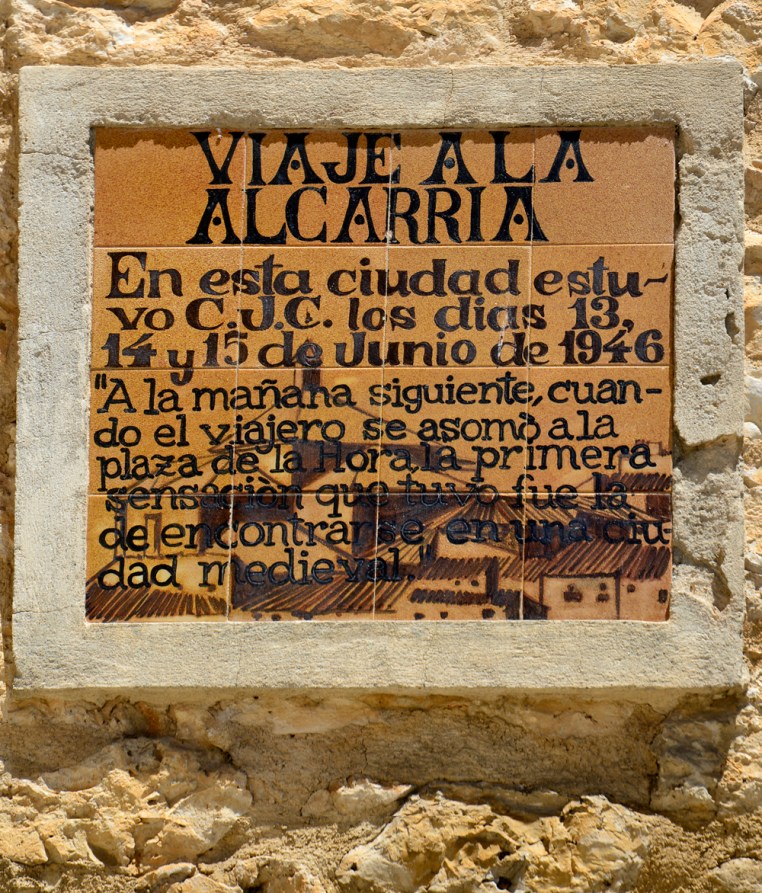 VIAJE A LA
ALCARRIA
En esta ciudad estu-
vo C.J.C. los dias 13,
14 y 15 de Junio de 1946
"A la mañana siguiente, cuan-
do el viajero se asomò a la
plaza de la Hora, la primera
sensaciòn que tuvo fue la
de encontrarse en una ciu-
dad medieval."